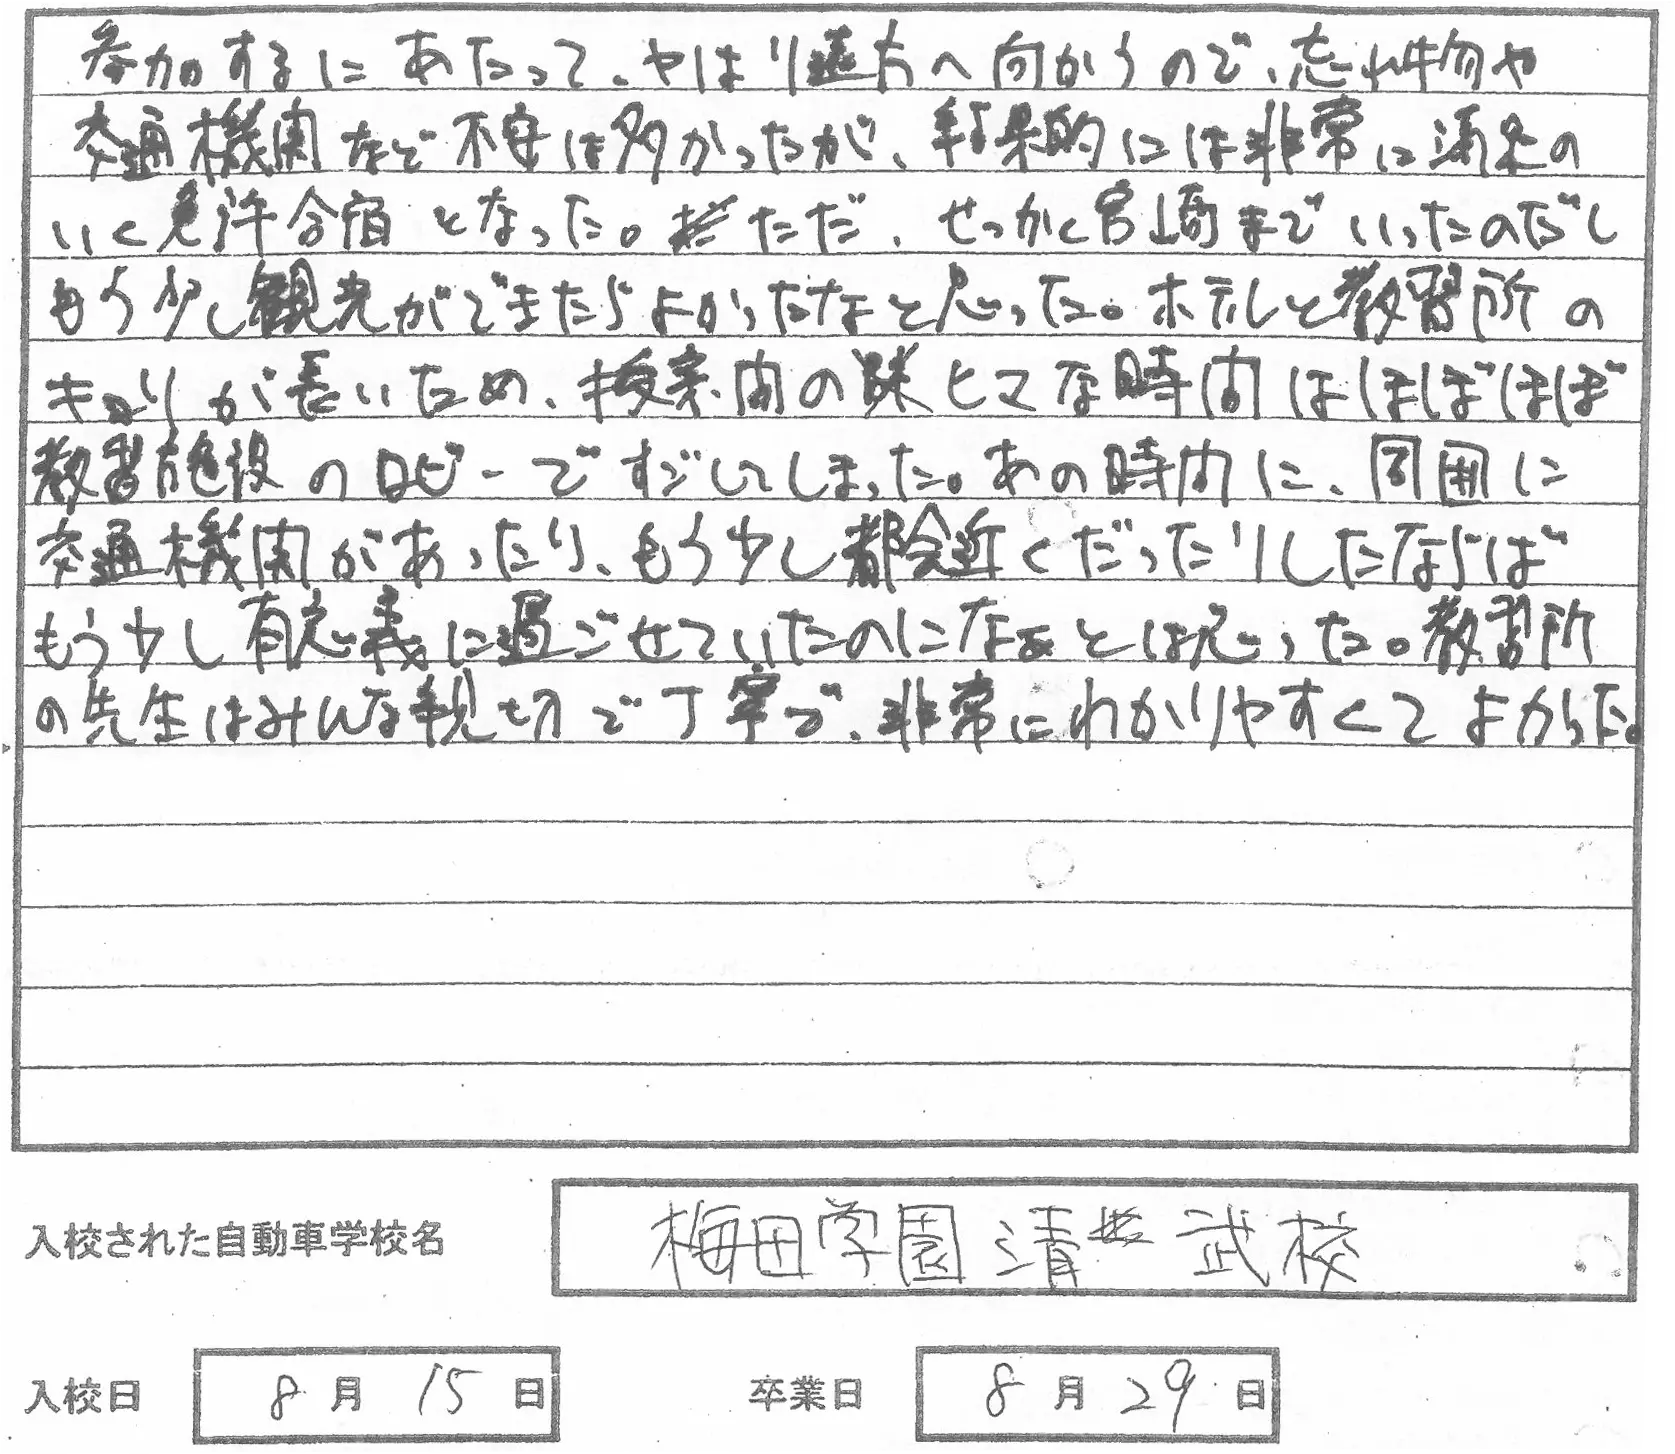 参加するにあたって、やはり遠方へ向かうので、忘れ物や
交通機関など不安は多かったが、結果的には非常に満足の
いく免許合宿となった。ただ、せっかく宮崎まで いったのだし
もう少し観光ができたらよかったなと思った。ホテルと教習所の
きょりが長いため、授業間のヒマな時間はほぼほぼ
教習施設のロビーですごしてしまった。あの時間に、周囲に
交通機関があったり、もう少し都会近くだったりしたならば
もう少し有意義に過ごせていたのになぁとは思った。教習所
の先生はみんな親切で丁寧で、非常にわかりやすくてよかった。
入校された自動車学校名 梅田学園 清武校
入校日 8月15日 卒業日 8月29日